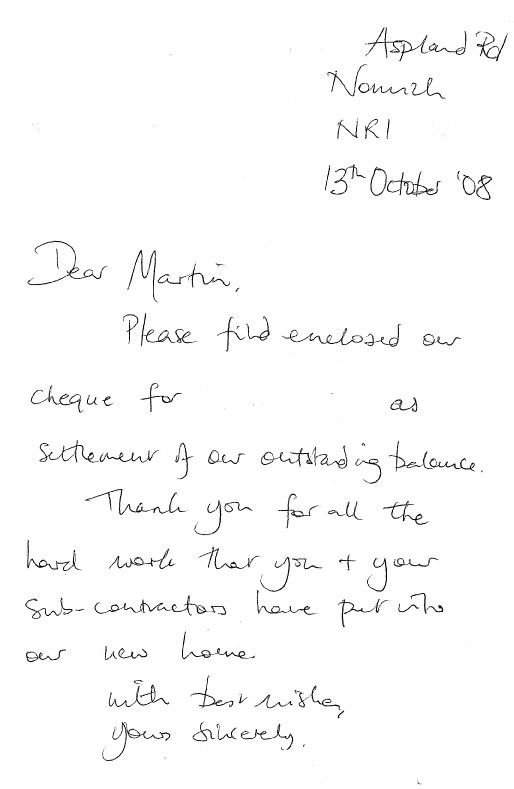 Aspland Rd
Norwich
NR1
13th October '08
Dear Martin,
Please find enclosed our
cheque for as
settlement of our outstanding balance.
Thank you for all the
hard work that you + your
sub-contractors have put into
our new home
with best wishes,
yours sincerely.